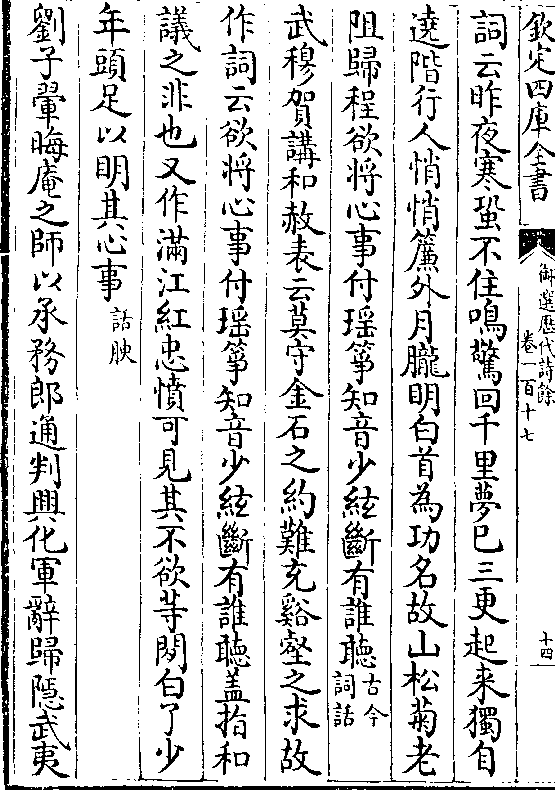 欽定四庫全書
御選歷代詩餘
卷一百十七
十四
詞云昨夜寒蛩不住鳴驚回千里夢已三更起来獨自
遶階行人悄悄簾外月朧明白首為功名故山松菊老
阻歸程欲將心事付瑶筝知音少絃斷有誰聽古今詞話
武穆賀講和赦表云莫守金石之約難充谿壑之求故
作詞云欲將心事付瑶筝知音少絃斷有誰聽盖指和
議之非也又作滿江紅忠憤可見其不欲等閒白了少
年頭足以明其心事話腴
劉子翬晦庵之師以承務郎通判興化軍辭歸隱武夷